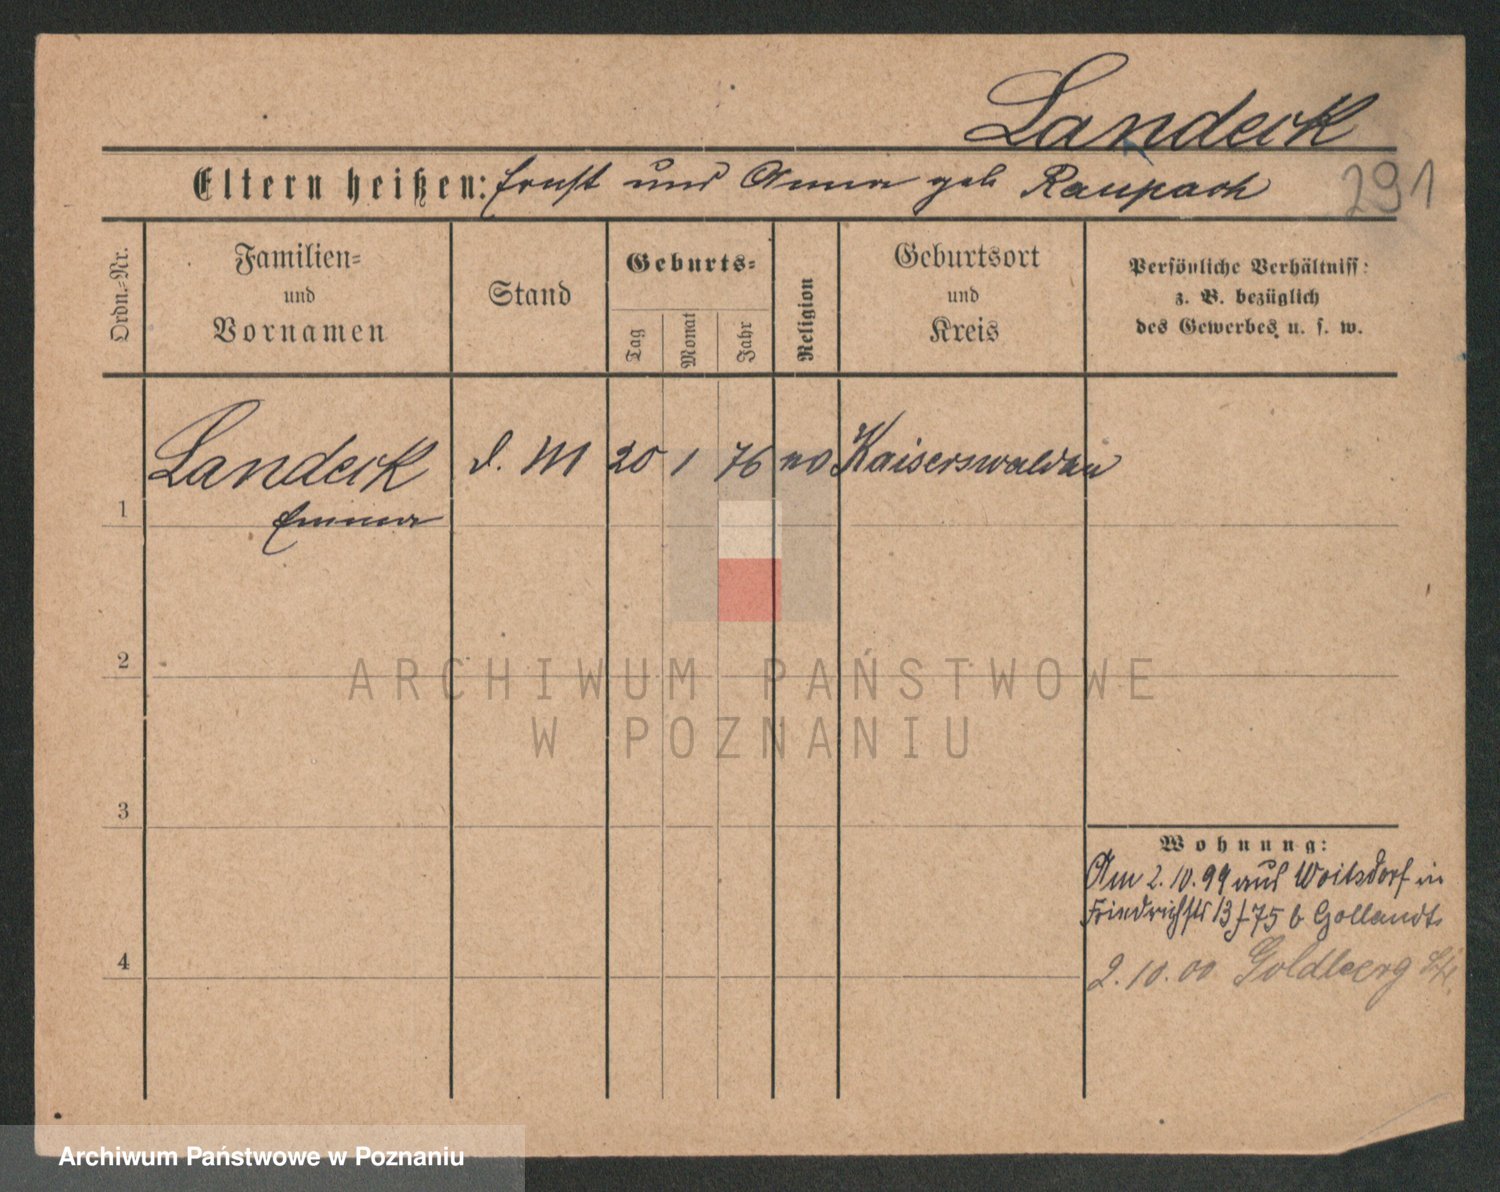 Landeck
Eltern heißen: Ernst und Anna geb Raupach
291
Ordn.=Nr.
Familien=
und
Vornamen
Stand
Geburts=
Tag
Monat
Jahr
Religion
Geburtsort
und
Kreis
Persönliche Verhältniss:
z. B. bezüglich
des Gewerbes u. s. w.
1
Landeck d. M 20 1 76 ev Kaiserswaldau
Emma
2
ARCHIWUM PAŃSTWOWE
W POZNANIU
3
Wohnung:
Am 2.10.99 aus Woitsdorf in
Friedrichstr 13 f 75 b Gollandt
4
2.10.00 Goldberg
Archiwum Państwowe w Poznaniu